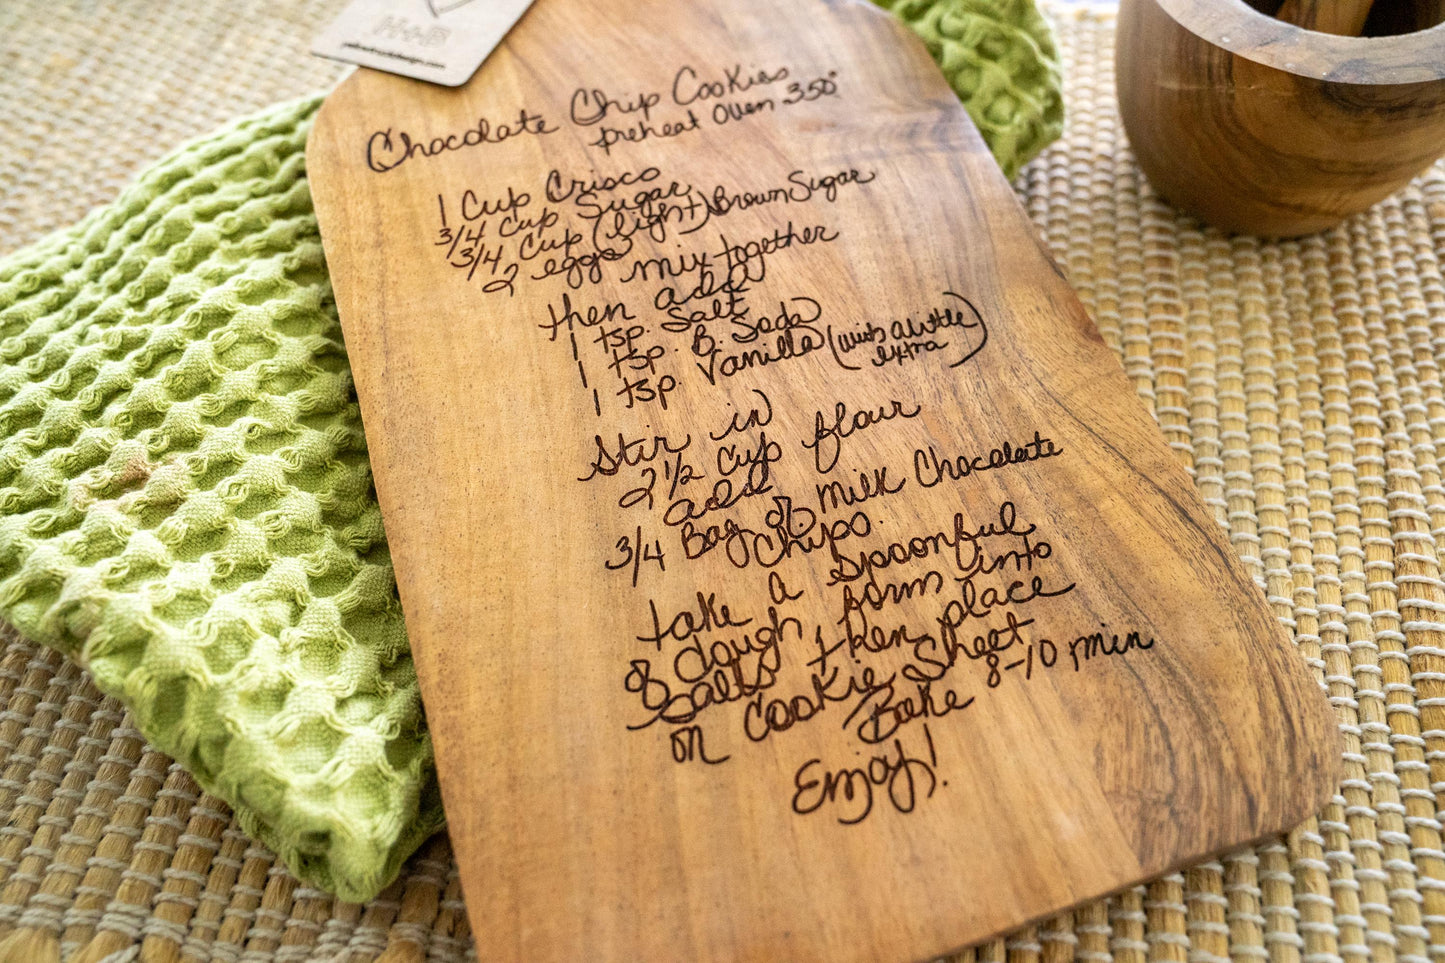 H+B
Chocolate Chip Cookies
preheat oven 350°
1 Cup Crisco
3/4 Cup Sugar
3/4 Cup (light) Brown Sugar
2 eggs mix together
then add
1 tsp. Salt
1 tsp. B. Soda
1 tsp. Vanilla (with a little
extra)
Stir in
2 1/2 Cup flour
add
3/4 Bag of Milk Chocolate
Chips.
take a spoonful
of dough, form into
balls then place
on Cookie Sheet
Bake 8-10 min
Enjoy!